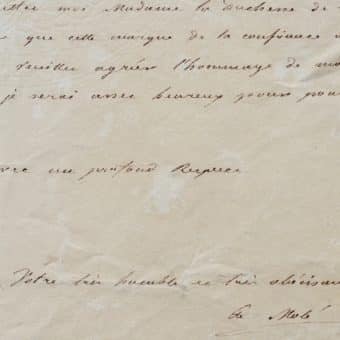 moi Madame la duchesse de
que cette marque de la confiance
veuillez agréer l'hommage de mo
je serai assez heureux pour pou
avec un profond Respect
Votre très humble et très obéissan
Molé